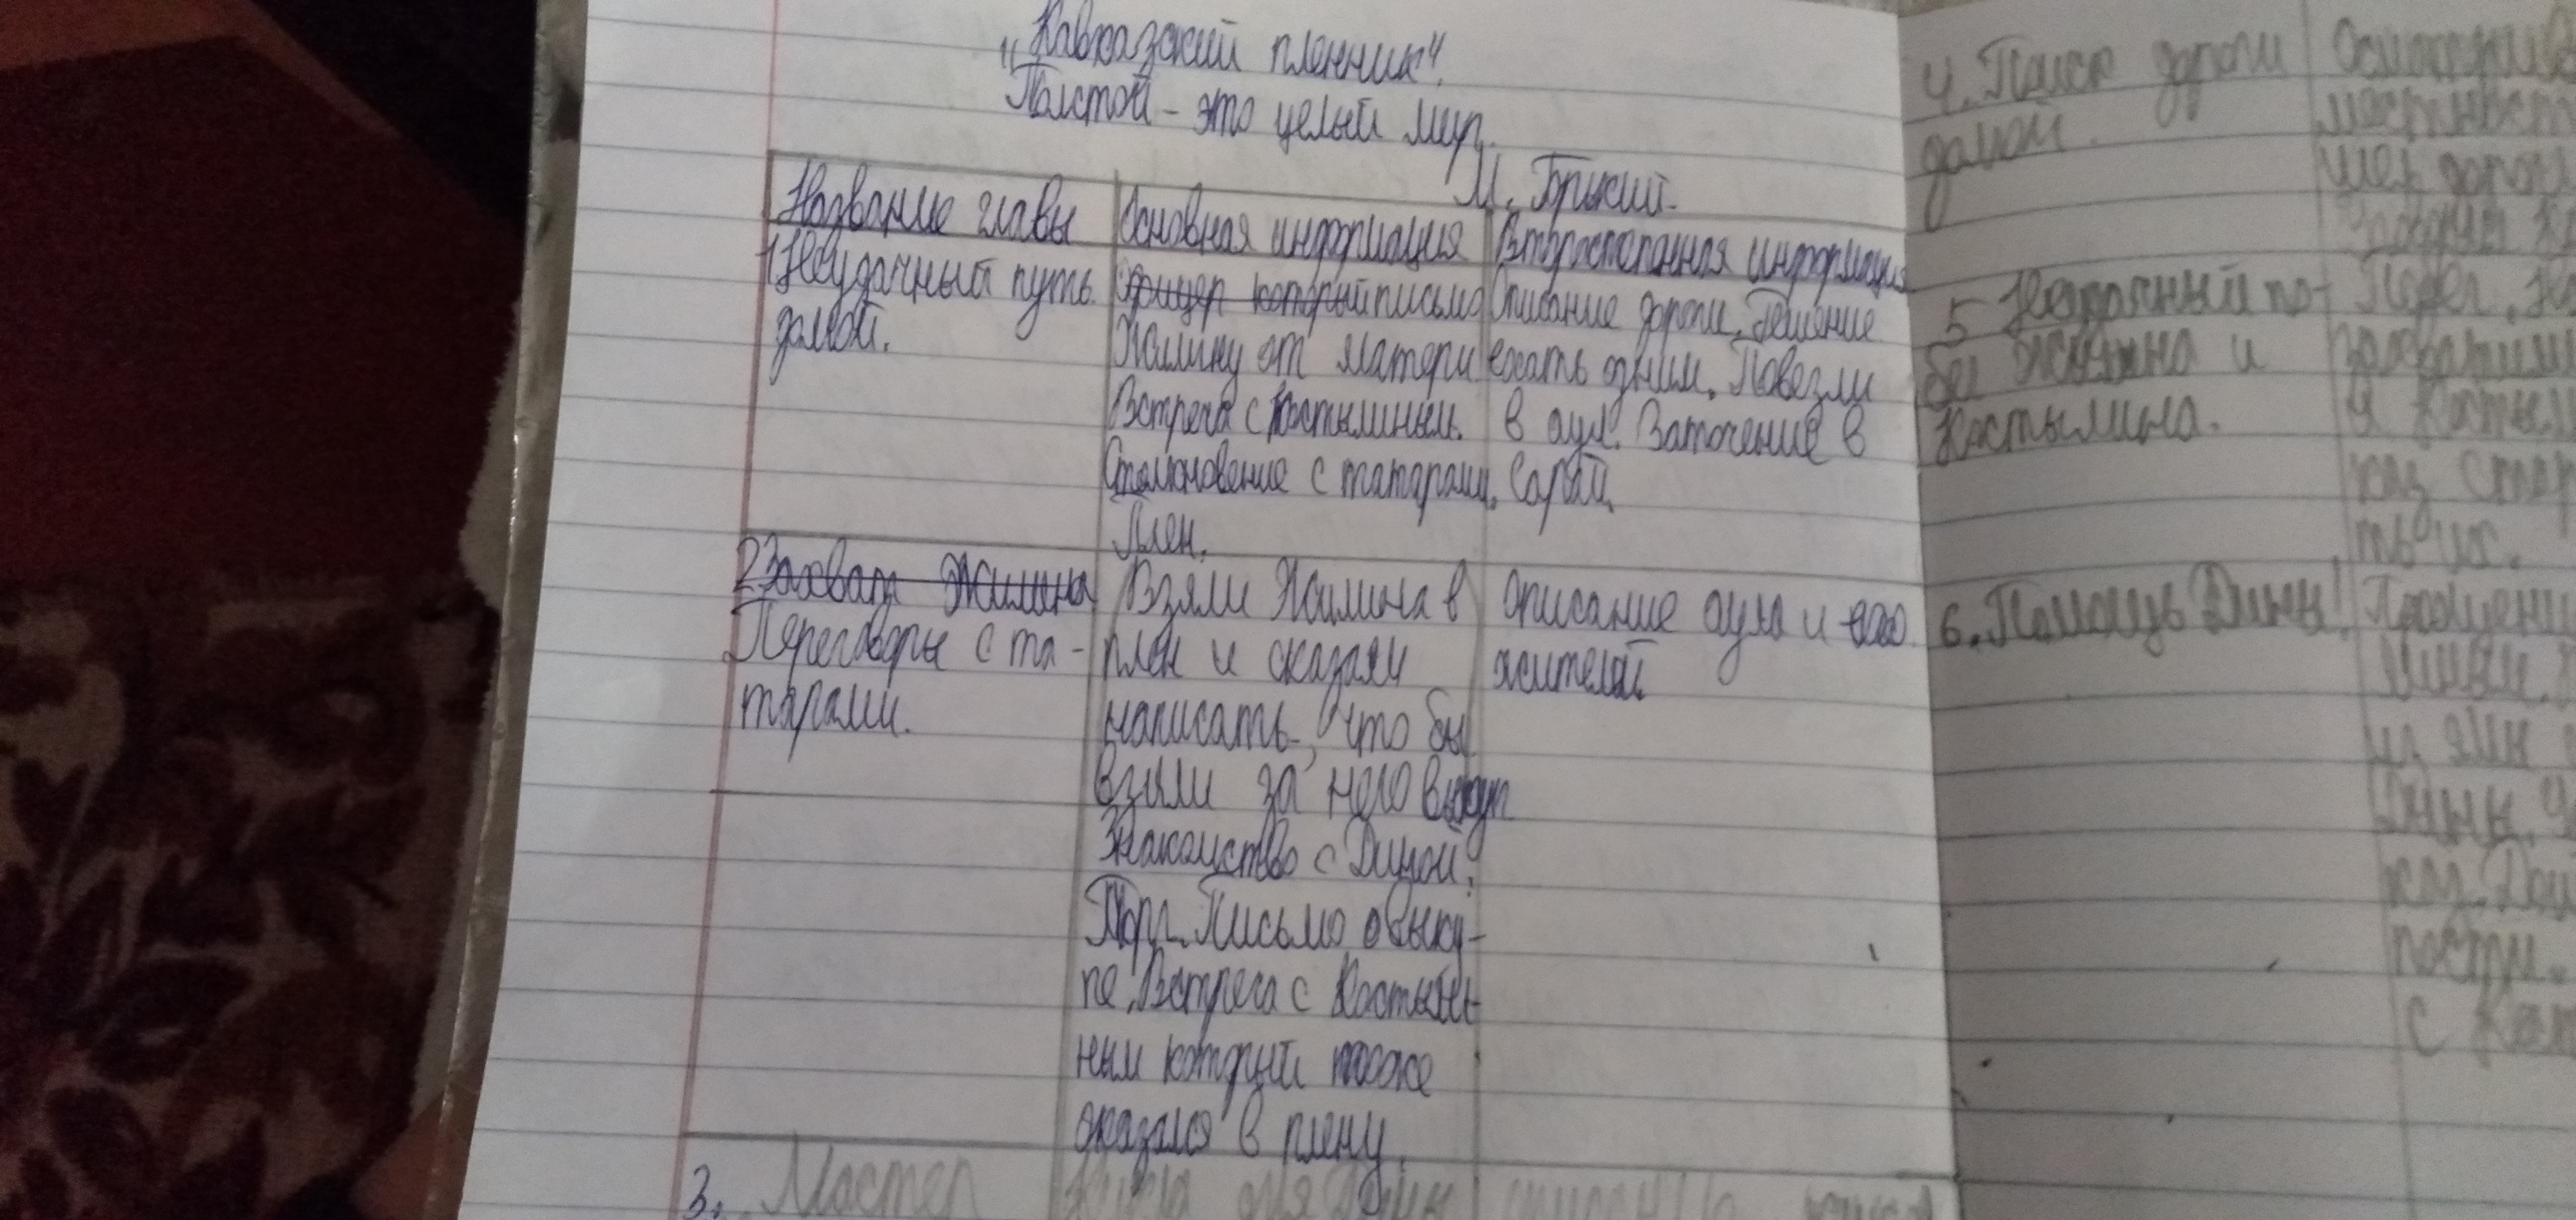 "Кавказский пленник".
Толстой - это целый мир.
М. Горький.
Название главы
Основная информация
Второстепенная информация
1 Неудачный путь
домой.
Офицер который письмо
Жилину от матери
Встреча с Костылиным.
Столкновение с татарами.
Плен.
Описание дороги. Решение
ехать одним. Повезли
в аул. Заточение в
Сарай.
2 Захват Жилина
Переговоры с та-
тарами.
Взяли Жилина в
плен и сказали
написать, что бы
взяли за него выкуп
Знакомство с Диной.
Торг. Письмо о выку-
пе. Встреча с
ным который тоже
оказался в плену.
Описание аула и его
жителей
3. Мастер
для Дины
4. Поиск дороги
домой.
5 Неудачный по-
бег Жилина и
Костылина.
Побег.
и
ть их.
6. Помощь Дины.
из ямы
Дины.
с